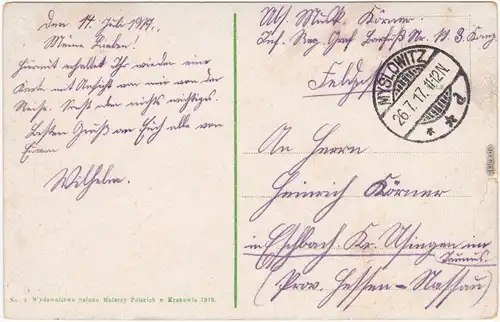 Den 14. Juli 1917.
Meine Lieben!
Hiermit erhaltet Ihr wieder eine
Karte mit Ansicht von mir von der
Reise. Sonst nichts wichtiges.
Besten Gruß an Euch alle von
Euern
Wilhelm.
No. 3 Wydawnictwo Salonu Malarzy Polskich w Krakowie 1916.
Abs. Musk. Körner.
Inf. Reg. Graf Barfuß Nr. 17. 3. Komp.
Feldpost
MYSLOWITZ
26.7.17. 11-12N.
* * d
An Herrn
Heinrich Körner
in Eschbach. Kr. Usingen im
Taunus.
(Prov. Hessen-Nassau)